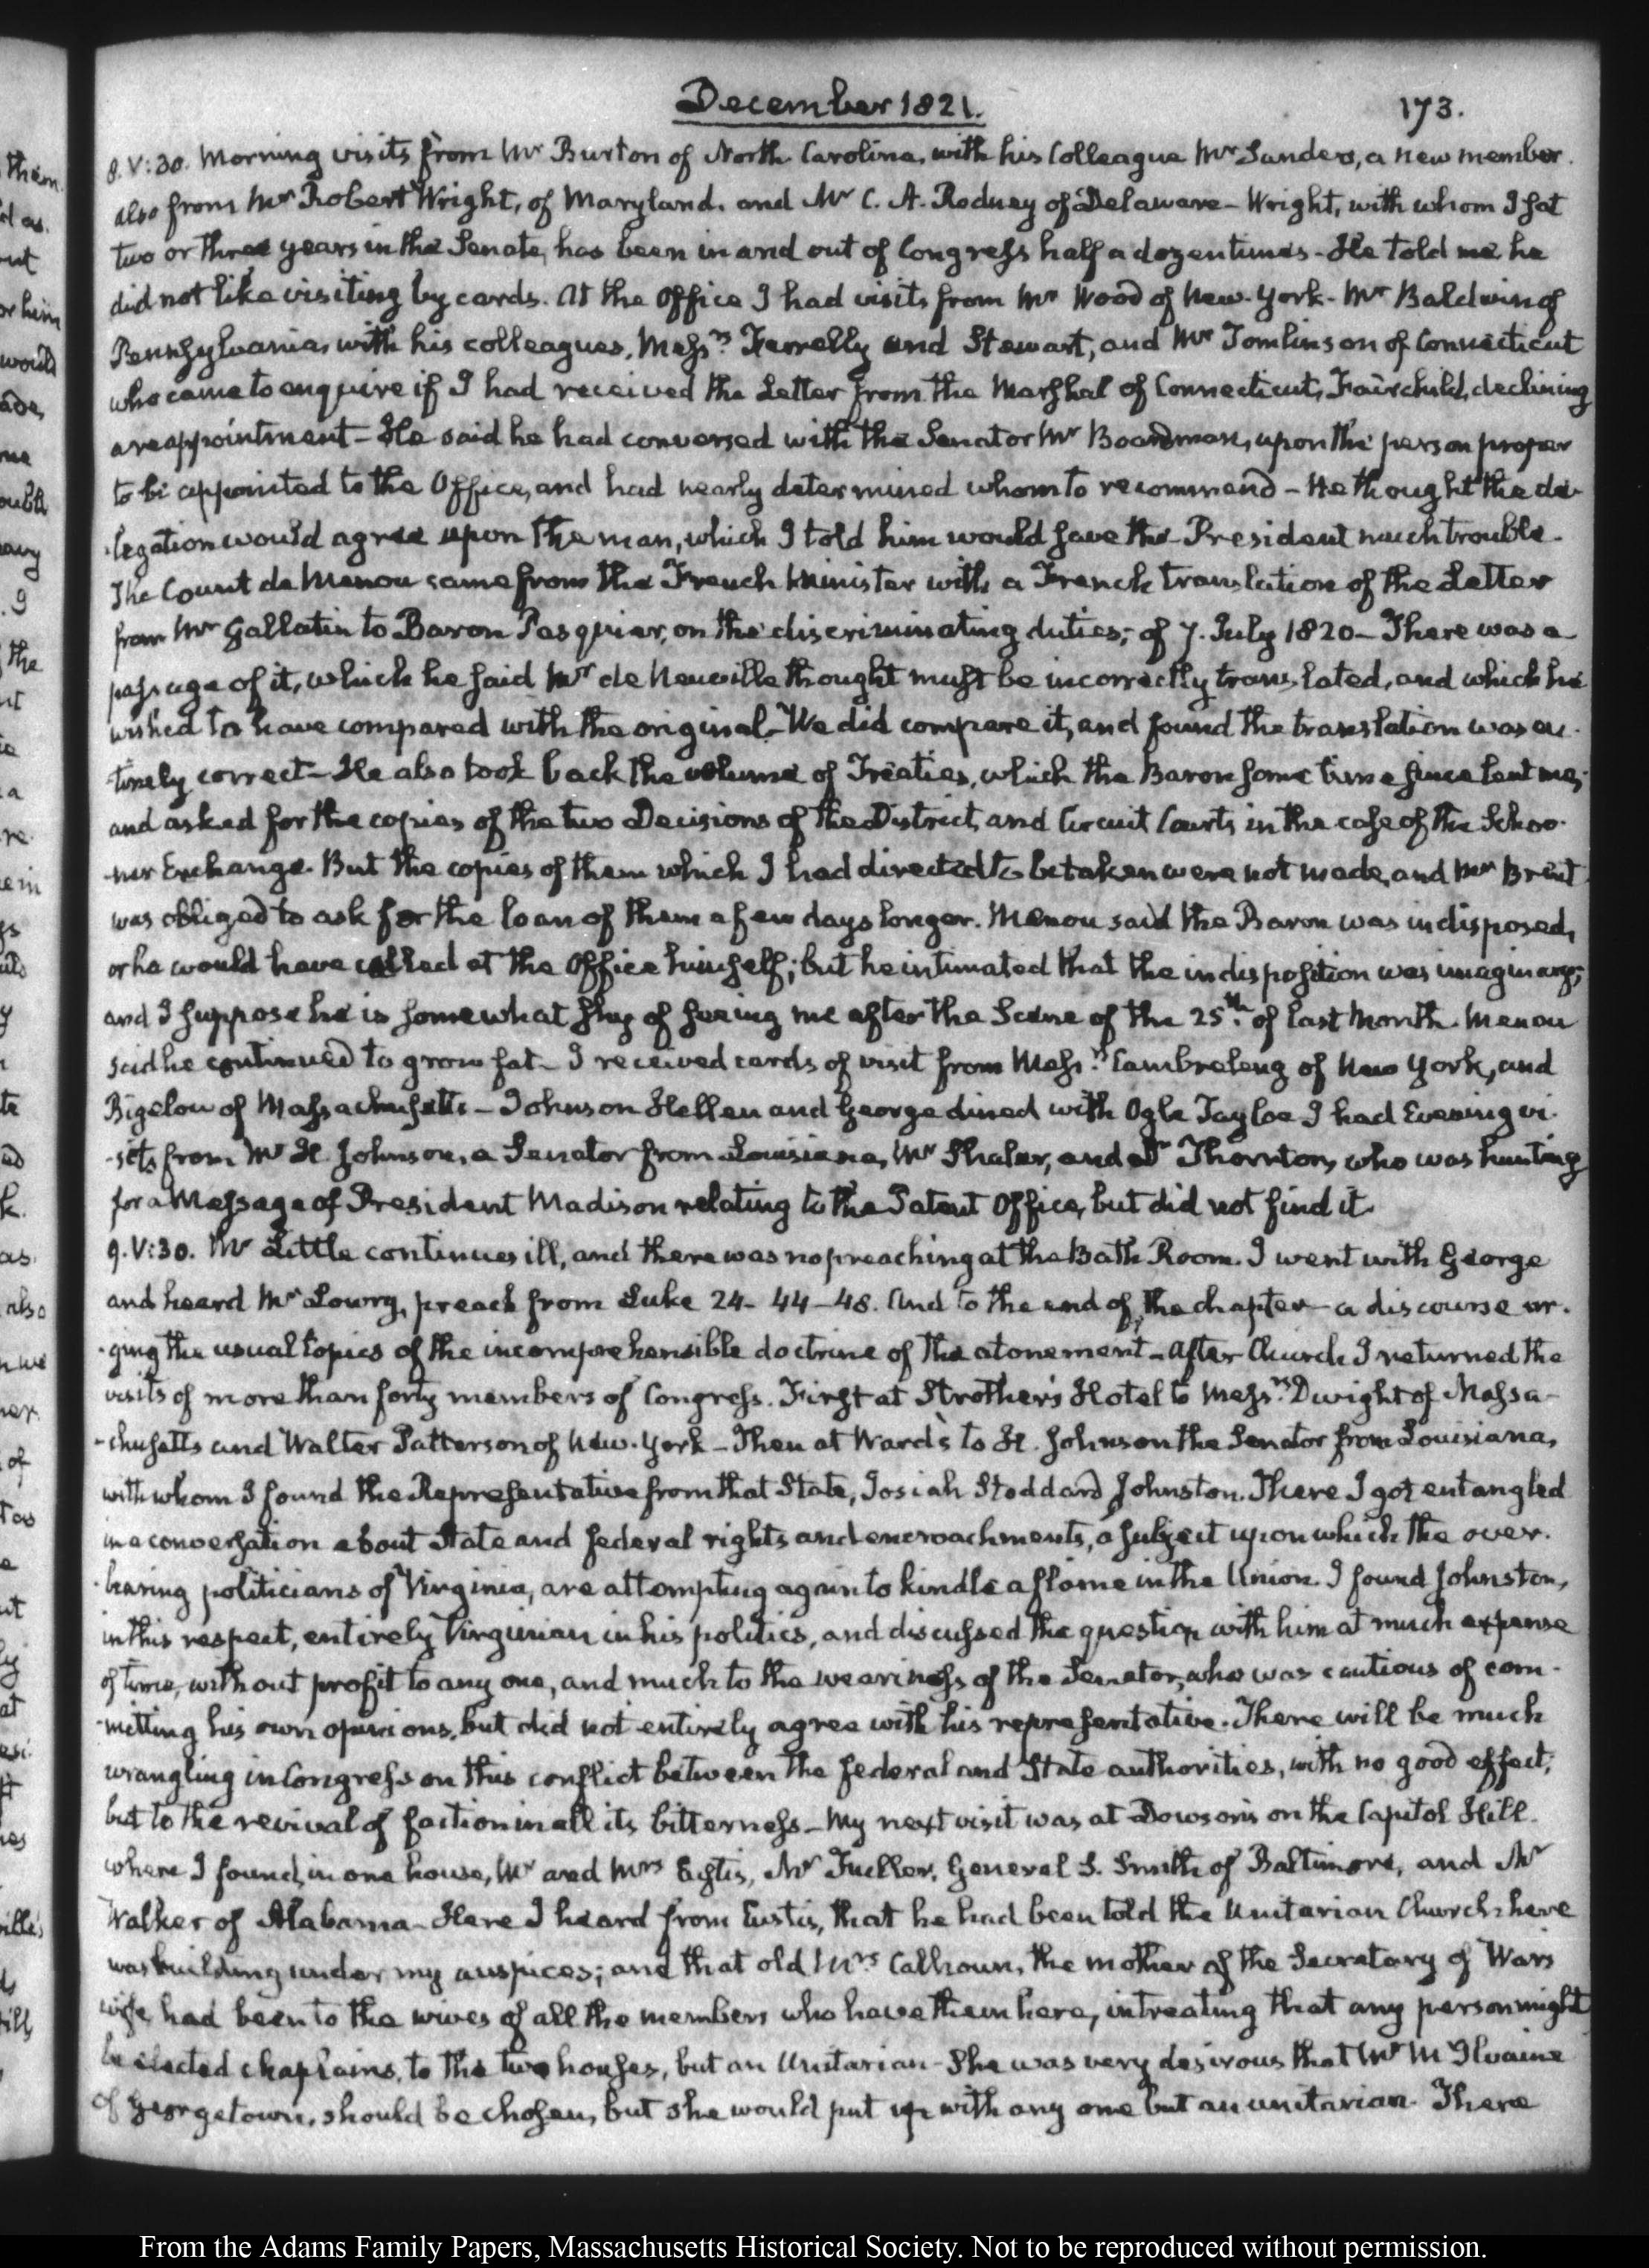 December 1821.
173.
8. V:30. Morning visits from Mr Burton of North Carolina, with his Colleague Mr Sanders, a new member.
also from Mr Robert Wright, of Maryland, and Mr C. A. Rodney of Delaware — Wright, with whom I sat
two or three years in the Senate, has been in and out of Congress half a dozen times — He told me he
did not like visiting by cards. At the Office I had visits from Mr Wood of New-York — Mr Baldwin of
Pennsylvania, with his colleagues, Messrs Farrelly and Stewart, and Mr Tomlinson of Connecticut
who came to enquire if I had received the Letter from the Marshal of Connecticut, Fairchild, declining
a reappointment — He said he had conversed with the Senator Mr Boardman, upon the person proper
to be appointed to the Office, and had nearly determined whom to recommend — He thought the de-
-legation would agree upon the man, which I told him would save the President much trouble.
The Count de Menou came from the French Minister with a French translation of the Letter
from Mr Gallatin to Baron Pasquier, on the discriminating duties; of 7. July 1820 — There was a
passage of it, which he said Mr de Neuville thought must be incorrectly translated, and which he
wished to have compared with the original. We did compare it, and found the translation was en-
-tirely correct — He also took back the volume of Treaties, which the Baron some time since lent me;
and asked for the copies of the two Decisions of the District, and Circuit Courts in the case of the Schoo-
-ner Exchange. But the copies of them which I had directed to be taken were not made, and Mr Brent
was obliged to ask for the loan of them a few days longer. Menou said the Baron was indisposed,
or he would have called at the Office himself; but he intimated that the indisposition was imaginary;
and I suppose he is somewhat shy of seeing me after the Scene of the 25th of last Month. Menou
said he continued to grow fat — I received cards of visit from Messrs Cambreleng of New York, and
Bigelow of Massachusetts — Johnson Hellen and George dined with Ogle Tayloe I had Evening vi-
-sits from Mr H. Johnson, a Senator from Louisiana, Mr Shaler, and Dr Thornton, who was hunting
for a Message of President Madison relating to the Patent Office, but did not find it.
9. V:30. Mr Little continues ill, and there was no preaching at the Bath Room. I went with George
and heard Mr Lowry, preach from Luke 24. 44-48. And to the end of the chapter — a discourse ur-
-ging the usual topics of the incomprehensible doctrine of the atonement — After Church I returned the
visits of more than forty members of Congress. First at Strother's Hotel to Messrs Dwight of Massa-
-chusetts and Walter Patterson of New-York — Then at Ward's to H. Johnson the Senator from Louisiana,
with whom I found the Representative from that State, Josiah Stoddard Johnston. There I got entangled
in a conversation about State and federal rights and encroachments, a subject upon which the over-
-bearing politicians of Virginia, are attempting again to kindle a flame in the Union. I found Johnston,
in this respect, entirely Virginian in his politics, and discussed the question with him at much expense
of time, without profit to any one, and much to the weariness of the Senator, who was cautious of com-
-mitting his own opinions, but did not entirely agree with his representative. There will be much
wrangling in Congress on this conflict between the federal and State authorities, with no good effect;
but to the revival of faction in all its bitterness — My next visit was at Dowson's on the Capitol Hill
where I found, in one house, Mr and Mrs Eustis, Mr Fuller, General S. Smith of Baltimore, and Mr
Walker of Alabama — Here I heard from Eustis, that he had been told the Unitarian Church here
was building under my auspices; and that old Mrs Calhoun, the mother of the Secretary of War's
wife, had been to the wives of all the members who have them here, intreating that any person might
be elected chaplains, to the two houses, but an Unitarian — She was very desirous that Mr McIlvaine
of Georgetown, should be chosen, but she would put up with any one but an unitarian. There
From the Adams Family Papers, Massachusetts Historical Society. Not to be reproduced without permission.